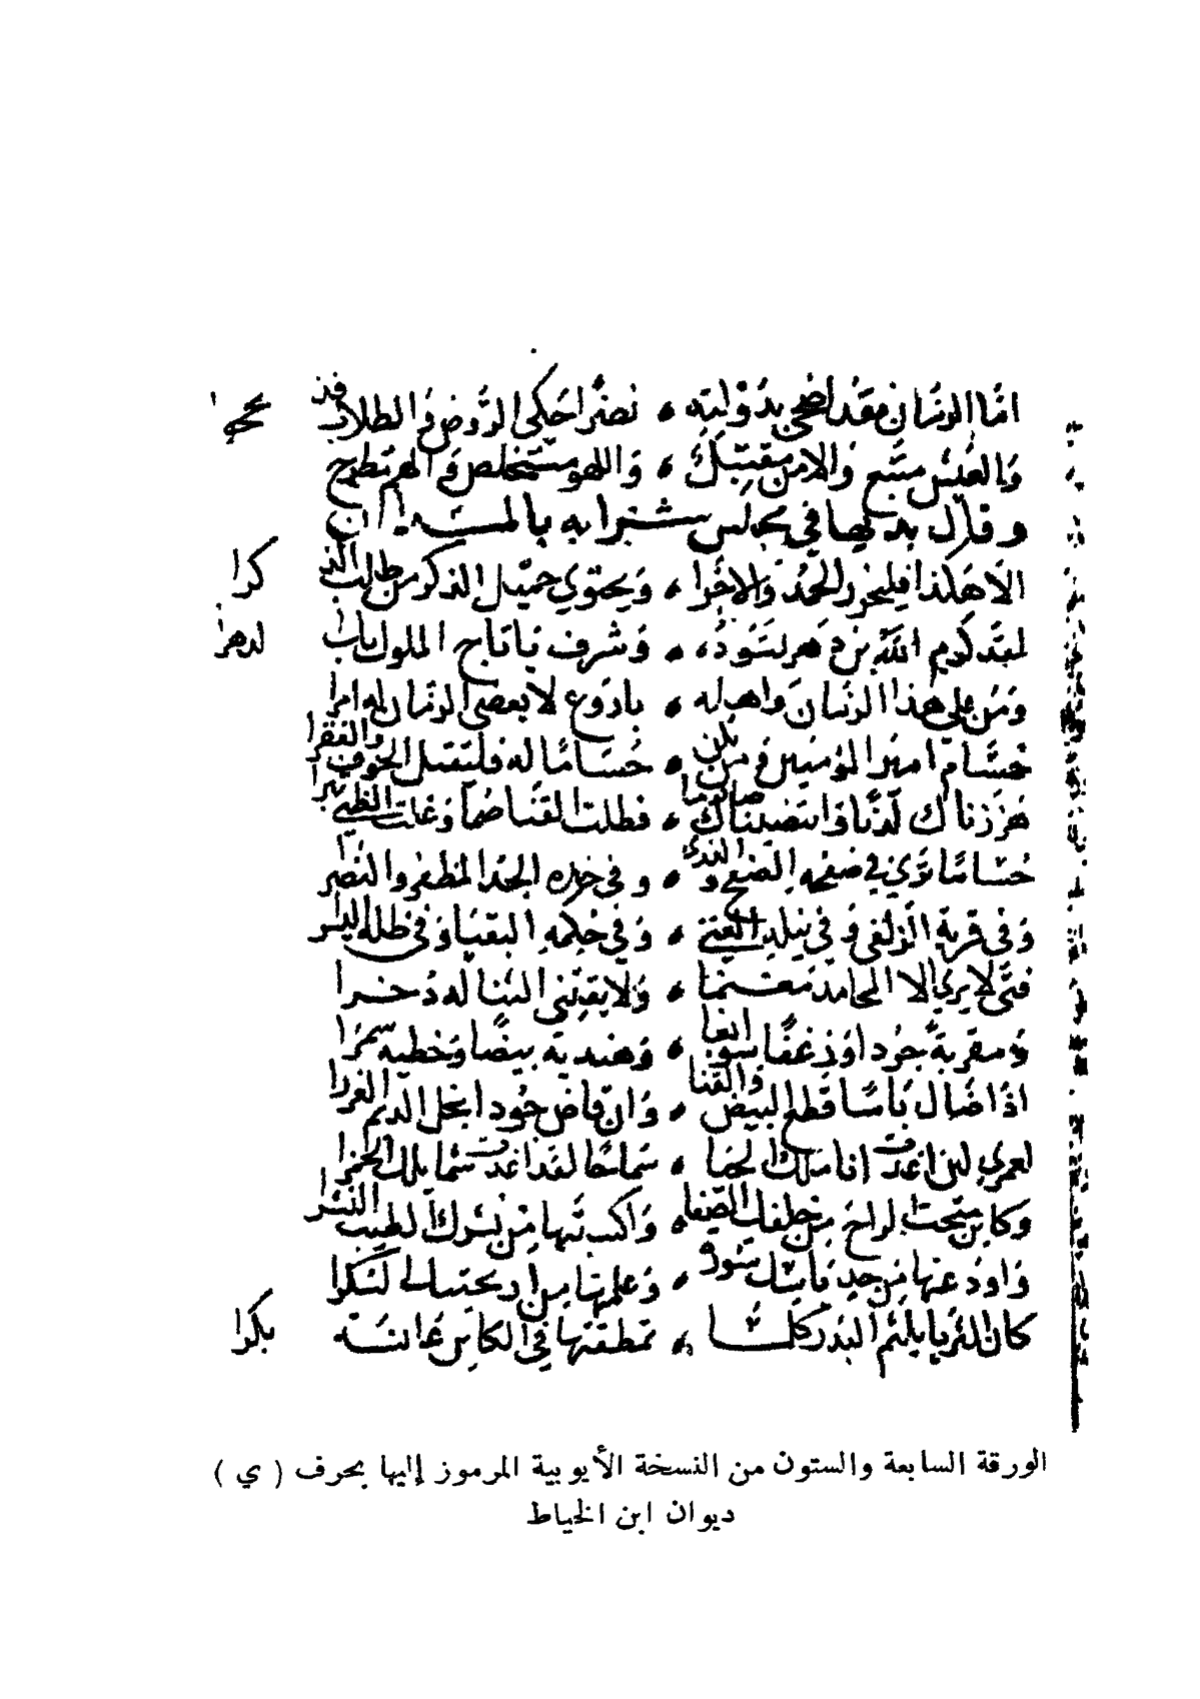 اما الزمان فقد اضحى بدولته نضرا حكى الروض في الطلاب قد
والعيش متبع والامن مقتبل واللهو مستخلص والهم مطرح
وقال بديها في مجلس شرابه بالميدان
الا هكذا فليحرز الحمد والاجرا ويحتوي جميل الذكر من طالب الذكرا
لقد كرم الله بن دهر تسوده وشرف يا تاج الملوك بك الدهرا
ومن على هذا الزمان واهله باروع لا يعصي الزمان له امرا
حسام امير المؤمنين ومن يكن حساما له فليقتل الخوف والفقرا
هززناك لدنا وانتضيناك صارما فطلت القنا صما وغلت الظبى بترا
حساما ترى في صفحه الصفح والندى وفي حده الجد المظفر والنصرا
وفي قربه الزلفى وفي نيله الغنى وفي حكمه البقيا وفي ظله اليسرا
فتى لا يرى الا المحامد مغنما ولا يقتني الا الثنا له ذخرا
ومقربة جردا وزغفا سوابغا وهندية بيضا وخطية سمرا
اذا صال باسا قطع البيض والقنا وان فاض جودا بخل الديم الغزرا
لعمري لئن اغدت اناملك الحيا سماحا لقد اغدت شمايلك الخمرا
وكاين منحت الراح من خلقك الصفا واكسبتها من نشرك الطيب النشرا
واودعتها من حد باسك سورة وعلمتها من اريحيتك السكرا
كان الثريا يلثم البدر كلما تمطقتها في الكاس عانسة بكرا
الورقة السابعة والستون من النسخة الأيوبية المرموز إليها بحرف ( ي )
ديوان ابن الخياط